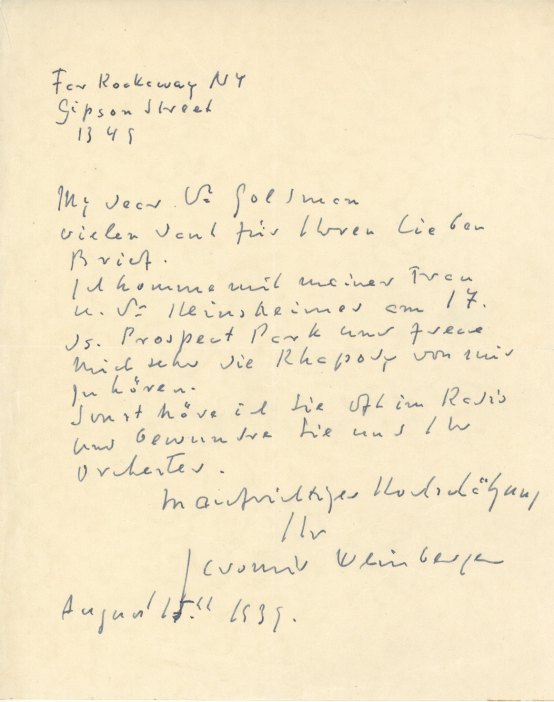 Far Rockaway NY
Gipson Street
1349
My dear Dr Goldman
vielen Dank für Ihren lieben
Brief.
Ich komme mit meiner Frau
u. Dr Heinsheimer am 17.
ds. Prospect Park und freue
mich sehr die Rhapsody von mir
zu hören.
Sonst höre ich Sie oft im Radio
und bewundre Sie und Ihr
Orchester.
In aufrichtiger Hochschätzung
Ihr
Jaromir Weinberger
August 15th 1939.